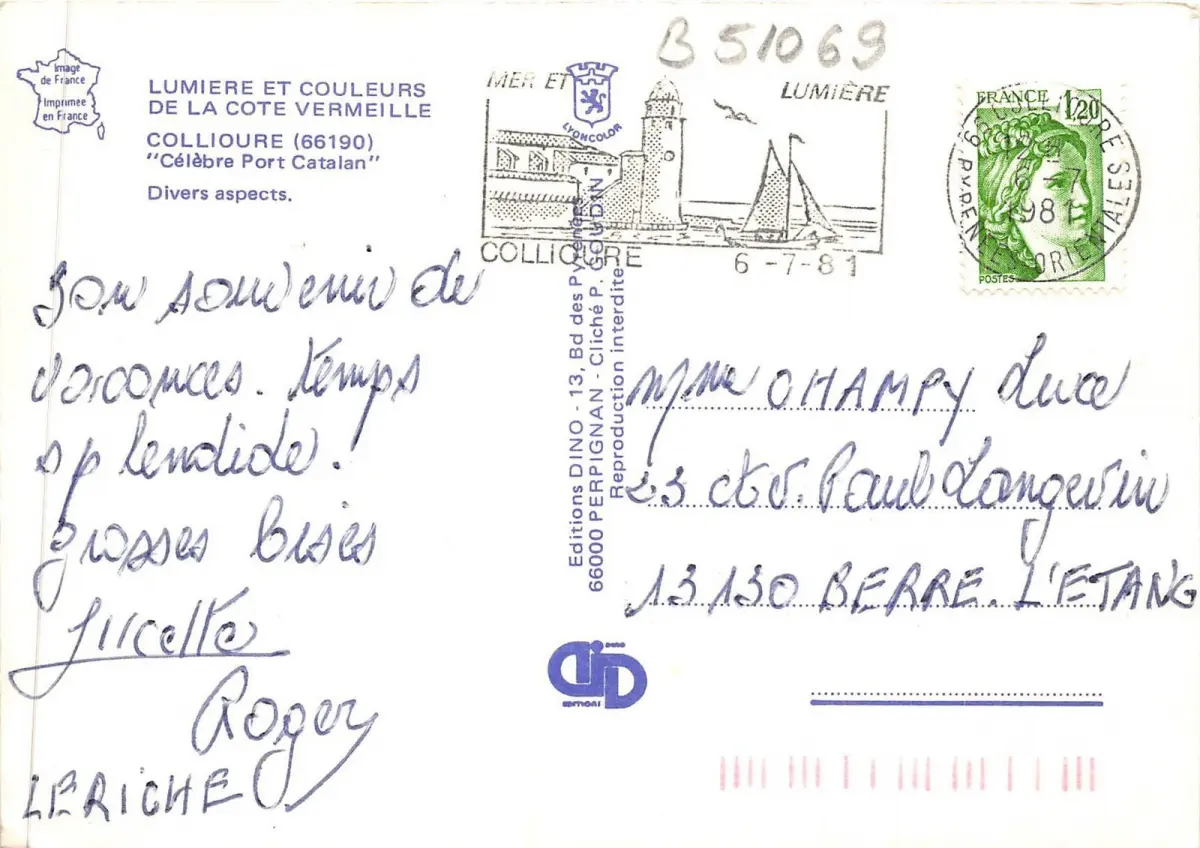 B 51069
Image
de France
Imprimée
en France
LUMIERE ET COULEURS
DE LA COTE VERMEILLE
COLLIOURE (66190)
"Célèbre Port Catalan"
Divers aspects.
MER ET LUMIÈRE
LYONCOLOR
COLLIOURE 6-7-81
FRANCE 1,20
POSTES
66 COLLIOURE
6-7
1981
PYRENEES ORIENTALES
Bon souvenir de
vacances. temps
splendide.
grosses bises
Lucette
Roger
LERICHE
Editions DINO - 13, Bd des Pyrénées
66000 PERPIGNAN - Cliché P. GOURDIN
Reproduction interdite
Mme CHAMPY Luce
23 cto. Paul Langevin
13130 BERRE. L'ETANG
DINO
EDITIONS